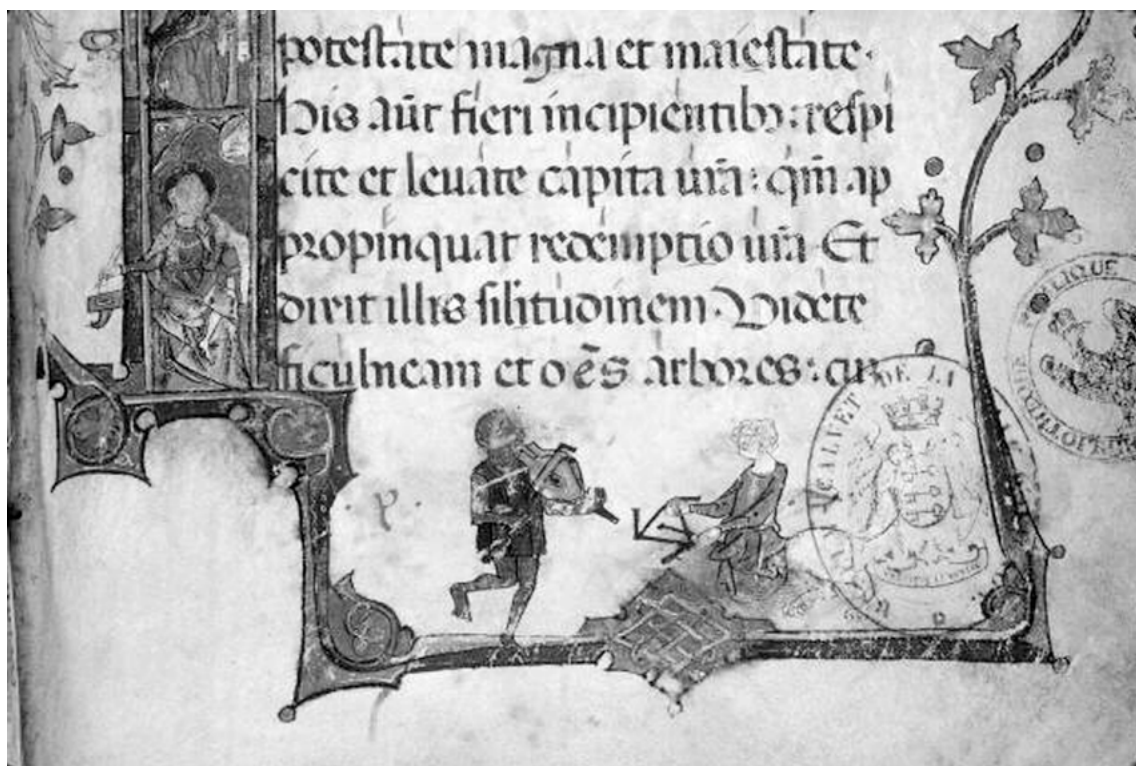 potestate magna et maiestate.
His aūt fieri incipientibꝫ : respi
cite et levate capita vr̄a : qm̄ ap
propinquat redemptio vr̄a. Et
dixit illis silitudinem. Videte
ficulneam et om̄s arbores : cum